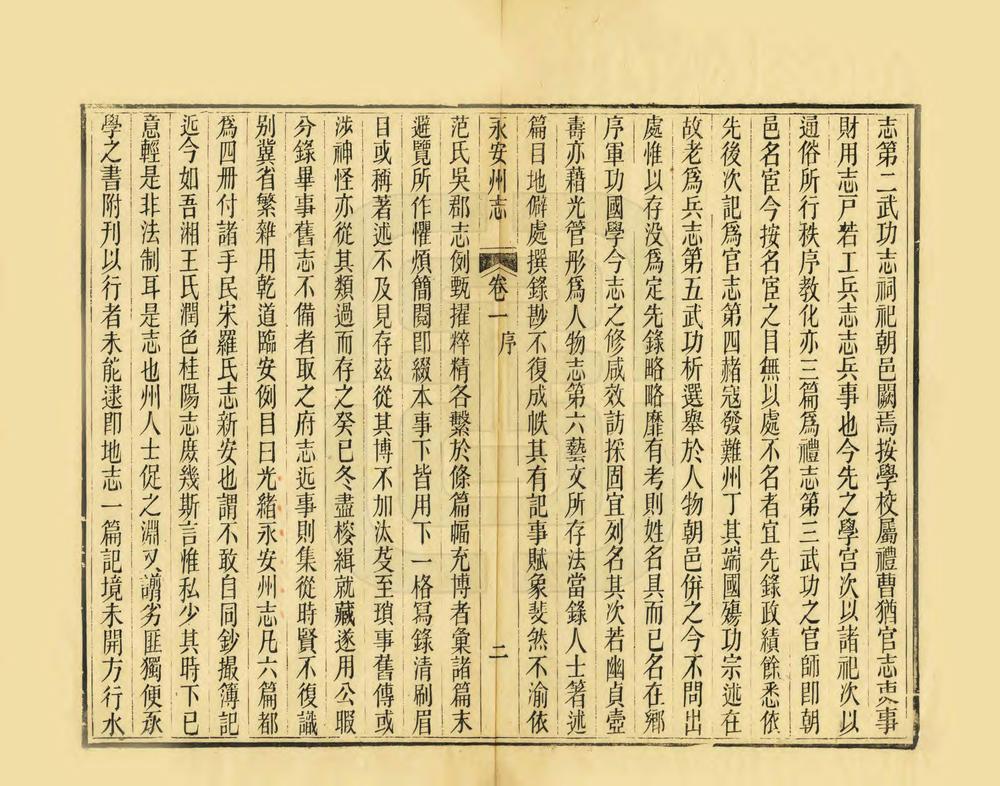 志第二武功志祠祀朝邑闕焉按學校屬禮曹猶官志吏事
財用志戸若工兵志志兵事也今先之學宮次以諸祀次以
通俗所行秩序教化亦三篇爲禮志第三武功之官師卽朝
邑名宦今按名宦之目無以處不名者宜先錄政績餘悉依
先後次記爲官志第四赭寇發難州丁其端國殤功宗述在
故老爲兵志第五武功析選舉於人物朝邑併之今不問出
處惟以存没爲定先錄略略靡有考則姓名具而已名在鄉
序軍功國學今志之修咸效訪採固宜列名其次若幽貞壼
壽亦藉光管彤爲人物志第六藝文所存法當錄人士著述
篇目地僻處撰錄尠不復成帙其有記事賦象斐然不渝依
永安州志 卷一 序 二
范氏吳郡志例甄擢粹精各繫於條篇幅充博者彙諸篇末
避覽所作懼煩簡閱卽綴本事下皆用下一格寫錄清刷眉
目或稱著述不及見存茲從其博不加汰芟至瑣事舊傳或
涉神怪亦從其類過而存之癸巳冬盡梭緝就藏遂用公暇
分錄畢事舊志不備者取之府志近事則集從時賢不復識
别冀省繁雜用乾道臨安例目曰光緒永安州志凡六篇都
爲四冊付諸手民宋羅氏志新安也謂不敢自同鈔撮簿記
近今如吾湘王氏潤色桂陽志庶幾斯言惟私少其時下已
意輕是非法制耳是志也州人士促之淵又譾劣匪獨便承
學之書附刊以行者未能逮卽地志一篇記境未開方行水